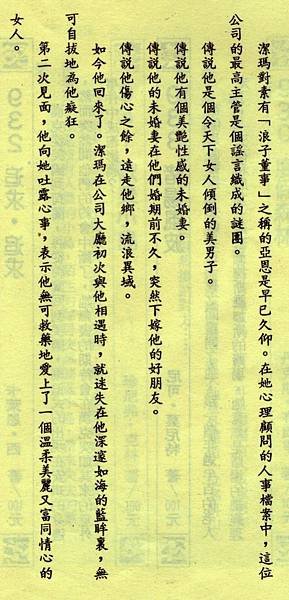 潔瑪對素有「浪子董事」之稱的亞恩是早已久仰。在她心理顧問的人事檔案中，這位
公司的最高主管是個謠言織成的謎團。
傳說他是個令天下女人傾倒的美男子。
傳說他有個美艷性感的未婚妻。
傳說他的未婚妻在他們婚期前不久，突然下嫁他的好朋友。
傳說他傷心之餘，遠走他鄉，流浪異域。
如今他回來了。潔瑪在公司大廳初次與他相遇時，就迷失在他深邃如海的藍眸裏，無
可自拔地為他癡狂。
第二次見面，他向她吐露心事，表示他無可救藥地愛上了一個溫柔美麗又富同情心的
女人。